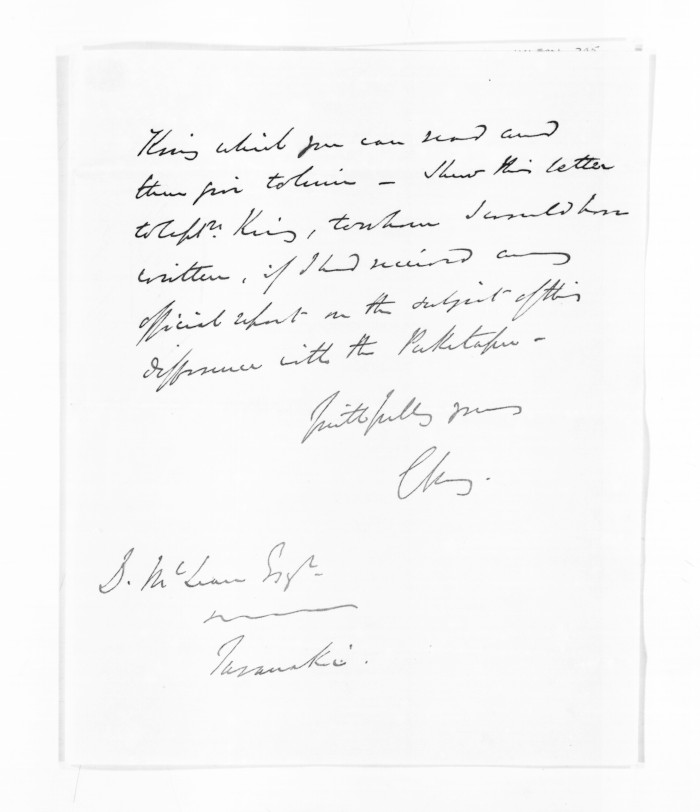 King which you can read and
then give to him — Shew this letter
to Captn. King, to whom I would have
written, if I had received any
official report on the subject of this
difference with the Puketapu —
Faithfully yours
D. McLean Esqre.
Taranaki.